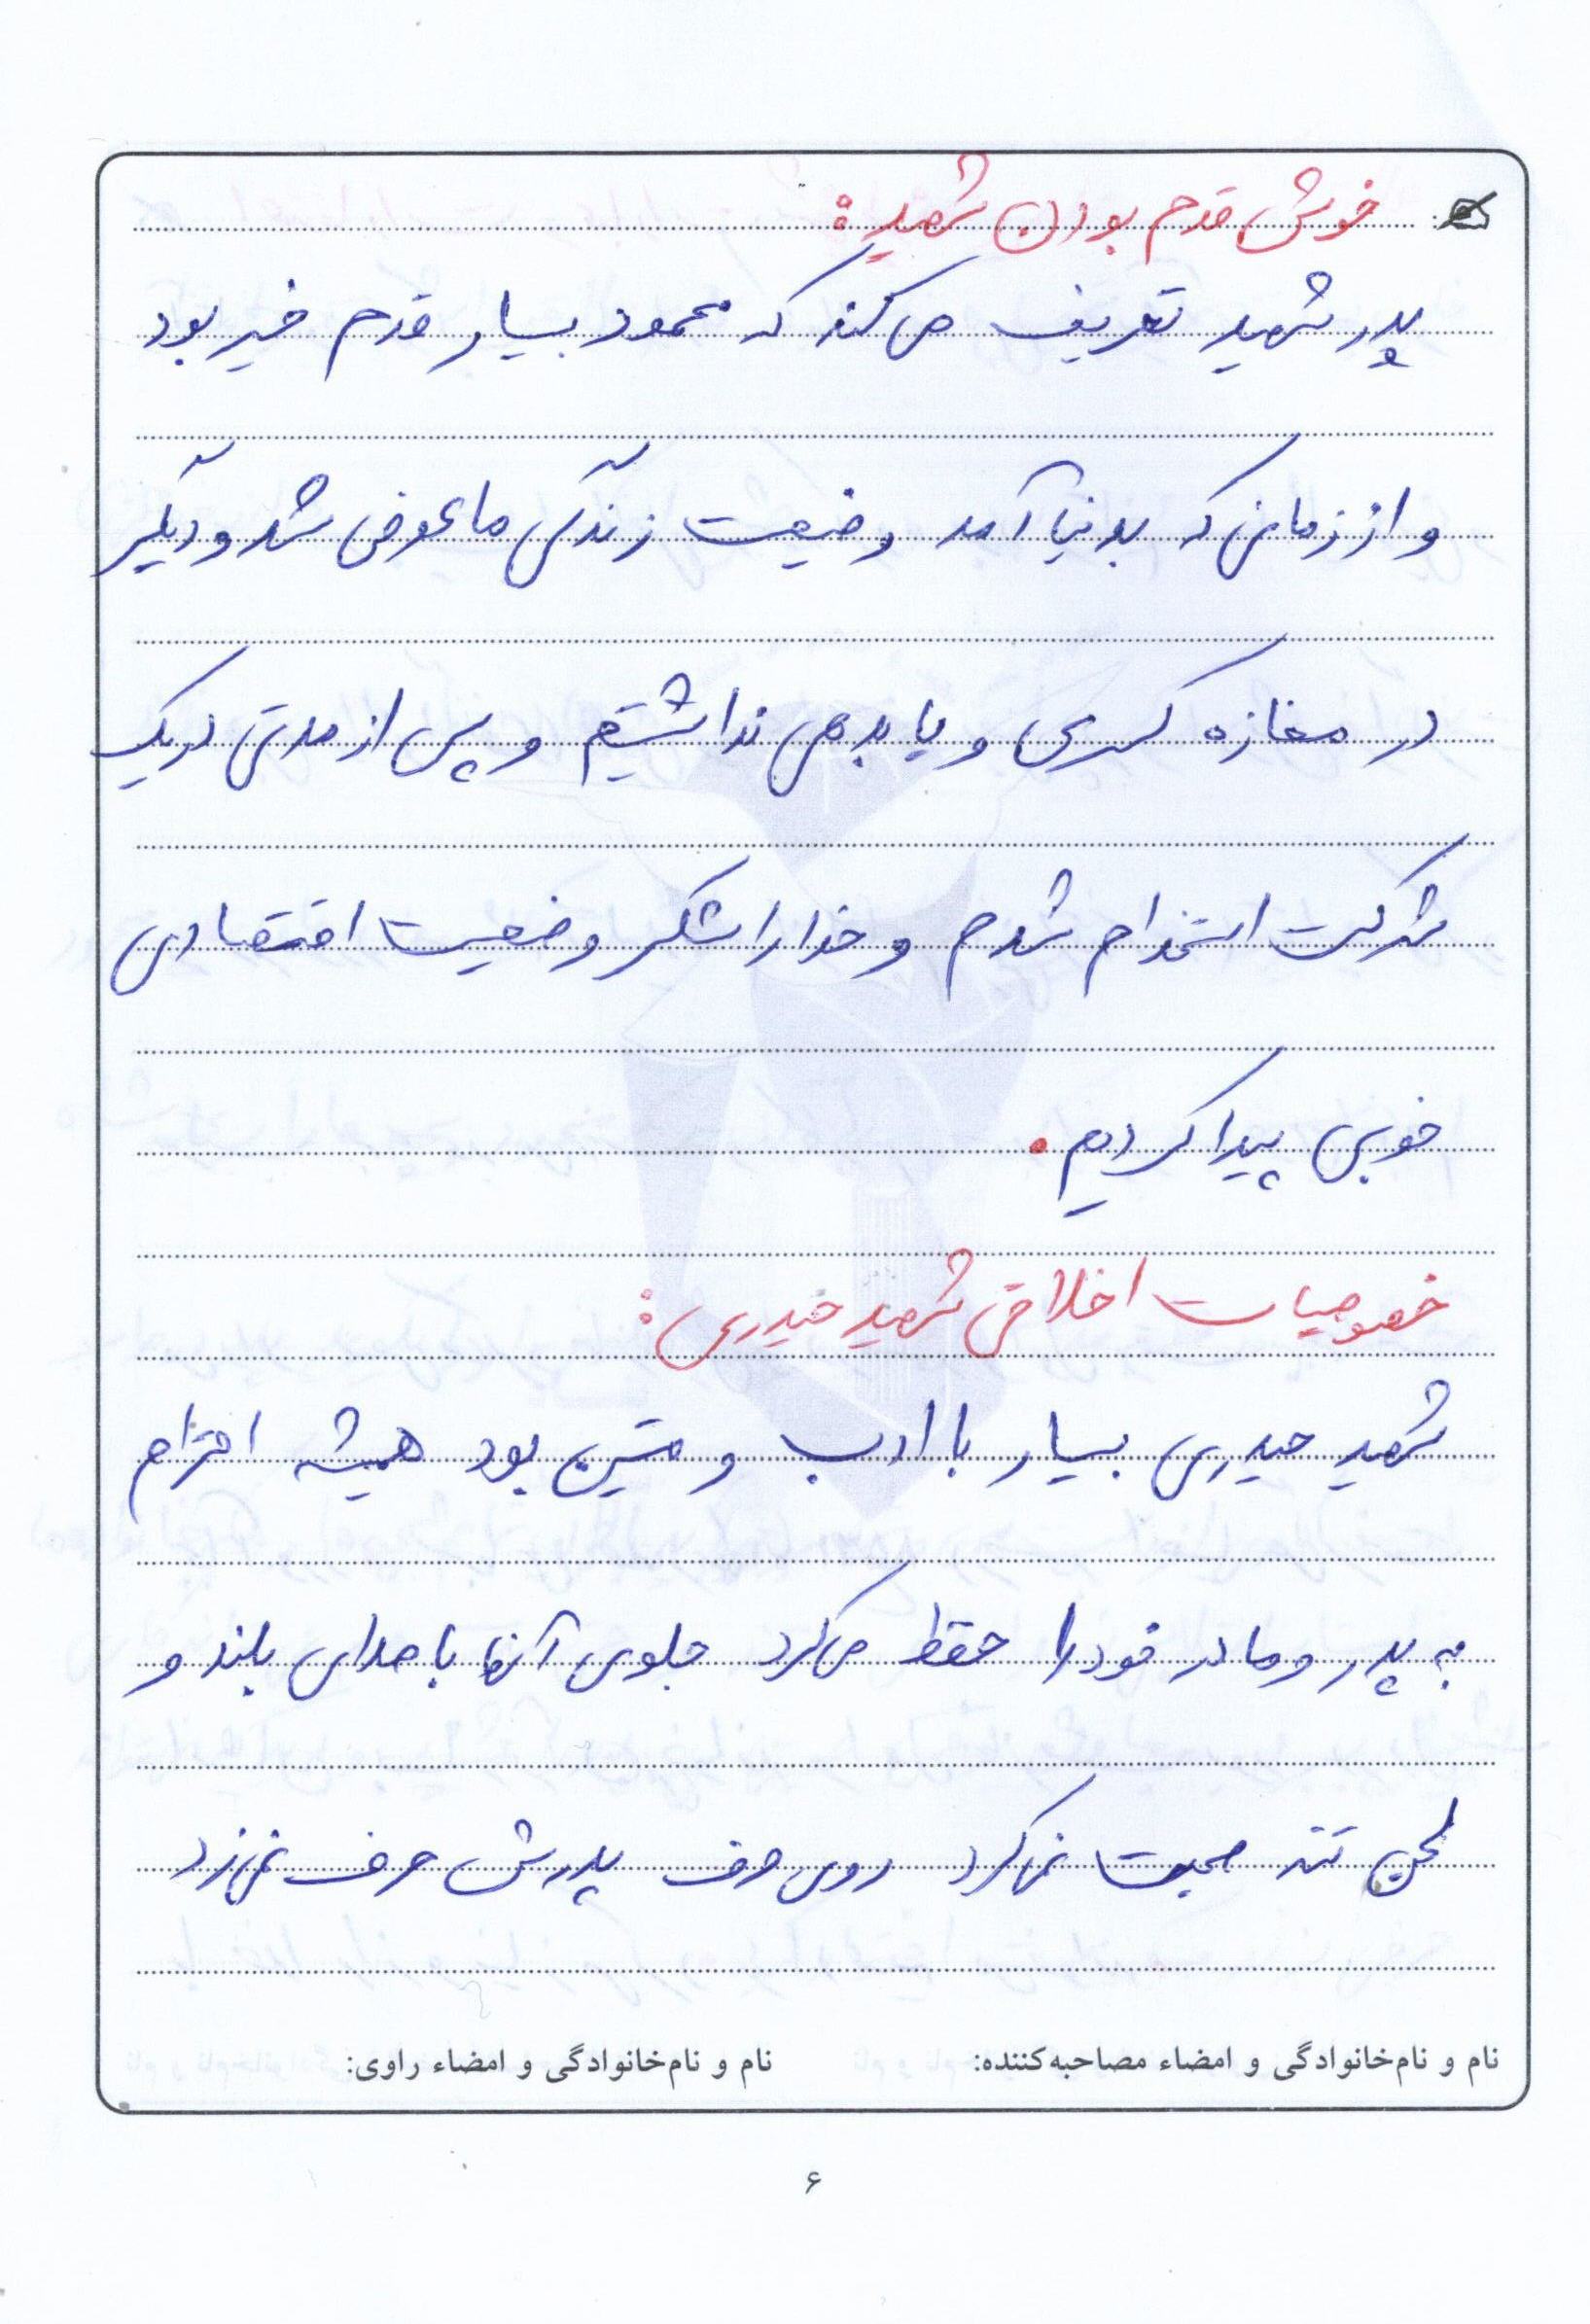 خوش قدم بودن شهید:
پدر شهید تعریف می کند که محمود بسیار قدم خیر بود
و از زمانی که بدنیا آمد وضیعت زندگی ما عوض شد و دیگر
در مغازه کسری و یا بدهی نداشتیم و پس از مدتی در یک
شرکت استخدام شدم و خدا را شکر وضعیت اقتصادی
خوبی پیدا کردیم.
خصوصیات اخلاقی شهید حیدری:
شهید حیدری بسیار با ادب و متین بود همیشه احترام
به پدر و مادر خود را حفظ می کرد جلوی آنها با صدای بلند و
لحن تند صحبت نمی کرد روی حرف پدرش حرف نمی زد
نام و نام‌خانوادگی و امضاء مصاحبه‌کننده: نام و نام‌خانوادگی و امضاء راوی:
۶